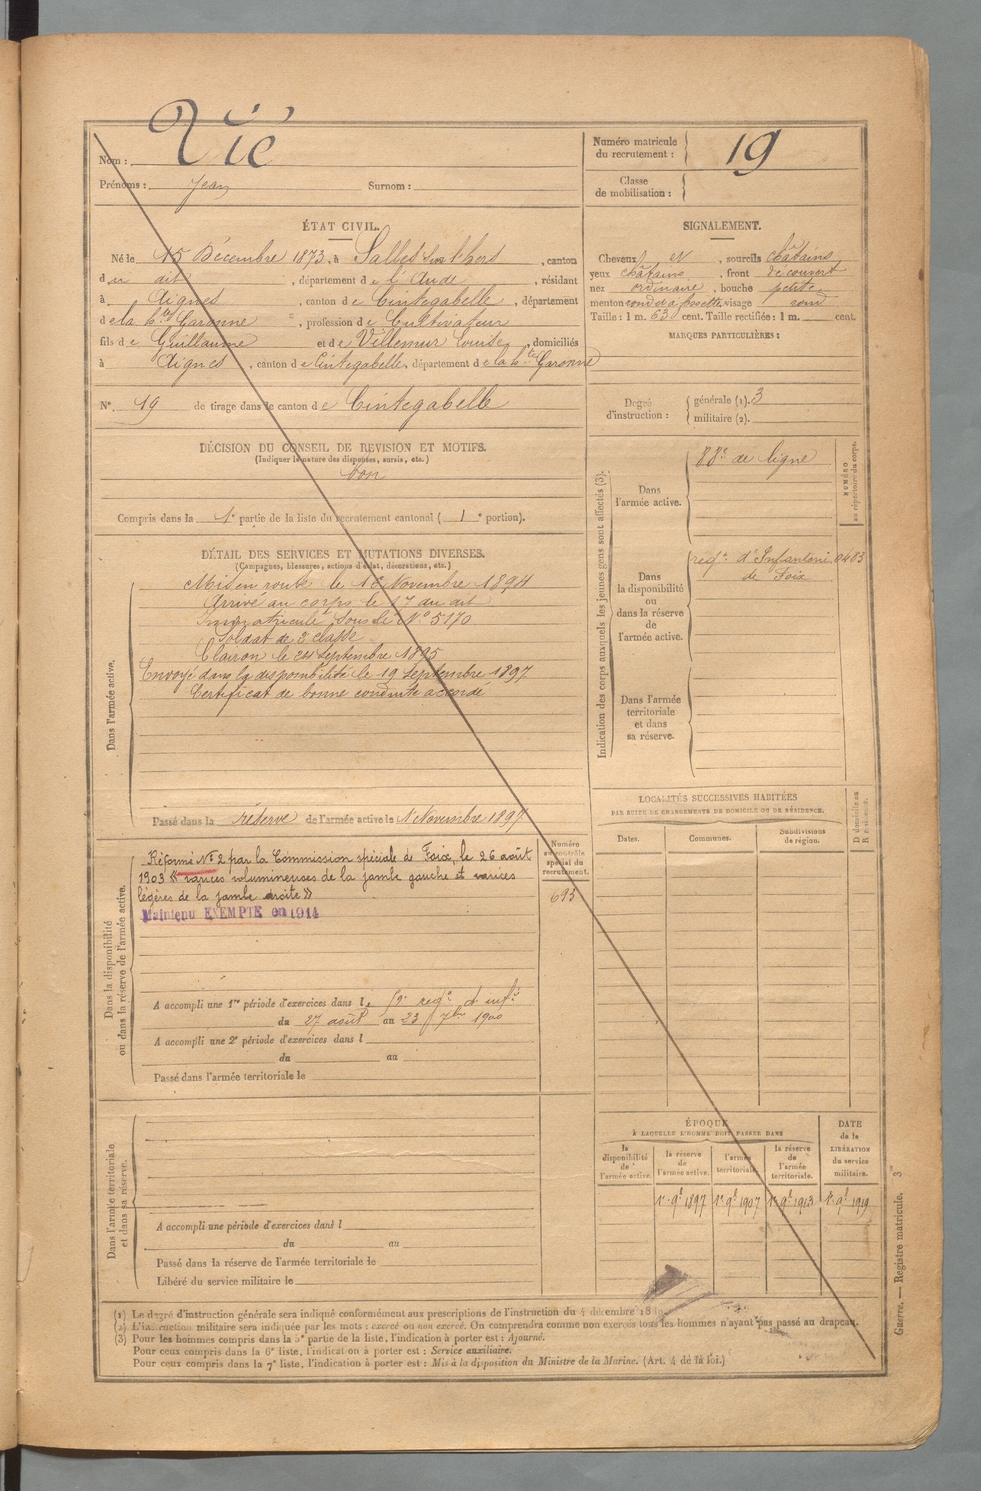 Nom : Vié
Prénoms : Jean Surnom :
Numéro matricule
du recrutement : 19
Classe
de mobilisation :
ÉTAT CIVIL.
Né le 15 Décembre 1873, à Salles sur l'hers, canton
du dit, département de l'Aude, résidant
à Aignes, canton de Cintegabelle, département
de la hte Garonne, profession de Cultivateur
fils de Guillaume et de Villemur Louise, domiciliés
à Aignes, canton de Cintegabelle, département de la hte Garonne
N° 19 de tirage dans le canton de Cintegabelle
DÉCISION DU CONSEIL DE REVISION ET MOTIFS.
(Indiquer la nature des dispenses, sursis, etc.)
bon
Compris dans la 1e partie de la liste du recrutement cantonal ( 1 e portion).
DÉTAIL DES SERVICES ET MUTATIONS DIVERSES.
(Campagnes, blessures, actions d'éclat, décorations, etc.)
Dans l'armée active.
Mis en route le 16 Novembre 1894
Arrivé au corps le 17 du dit
Immatriculé sous le N° 5170
Soldat de 2e classe
Clairon le 24 Septembre 1895
Envoyé dans la disponibilité le 19 Septembre 1897
Certificat de bonne conduite accordé
Passé dans la réserve de l'armée active le 1 Novembre 1897
Dans la disponibilité
ou dans la réserve de l'armée active.
Numéro
au contrôle
spécial du
recrutement.
693
Réformé N° 2 par la Commission spéciale de Foix, le 26 août
1903 « varices volumineuses de la jambe gauche et varices
légères de la jambe droite »
Maintenu EXEMPTE en 1914
A accompli une 1re période d'exercices dans le 59e regt d'infie
du 27 août au 23 7bre 1900
A accompli une 2e période d'exercices dans l
du au
Passé dans l'armée territoriale le
Dans l'armée territoriale
et dans sa réserve.
A accompli une période d'exercices dans l
du au
Passé dans la réserve de l'armée territoriale le
Libéré du service militaire le
SIGNALEMENT.
Cheveux et, sourcils châtains
yeux châtains, front découvert
nez ordinaire, bouche petite
menton rond à fossette, visage rond
Taille : 1 m. 63 cent. Taille rectifiée : 1 m. cent.
MARQUES PARTICULIÈRES :
Degré
d'instruction :
générale (1). 3
militaire (2).
Indication des corps auxquels les jeunes gens sont affectés (3).
NUMÉRO
au répertoire du corps.
Dans
l'armée active.
88e de ligne
Dans
la disponibilité
ou
dans la réserve
de
l'armée active.
regt d'Infanterie 0483
de Foix
Dans l'armée
territoriale
et dans
sa réserve.
LOCALITÉS SUCCESSIVES HABITÉES
PAR SUITE DE CHANGEMENTS DE DOMICILE OU DE RÉSIDENCE.
Dates. Communes. Subdivisions
de région.
D. domicile ou
R. résidence.
ÉPOQUE
À LAQUELLE L'HOMME DOIT PASSER DANS
la
disponibilité
de
l'armée active.
la réserve
de
l'armée active.
l'armée
territoriale.
la réserve
de
l'armée
territoriale.
DATE
de la
LIBÉRATION
du service
militaire.
1er 9bre 1897 1er 9bre 1907 1er 9bre 1913 1er 9bre 1919
(1) Le degré d'instruction générale sera indiqué conformément aux prescriptions de l'instruction du 4 décembre
(2) L'instruction militaire sera indiquée par les mots : exercé ou non exercé. On comprendra comme non exercés tous les hommes n'ayant pas passé au drapeau.
(3) Pour les hommes compris dans la 5e partie de la liste, l'indication à porter est : Ajourné.
Pour ceux compris dans la 6e liste, l'indication à porter est : Service auxiliaire.
Pour ceux compris dans la 7e liste, l'indication à porter est : Mis à la disposition du Ministre de la Marine. (Art. 4 de la loi.)
Guerre. — Registre matricule. 3